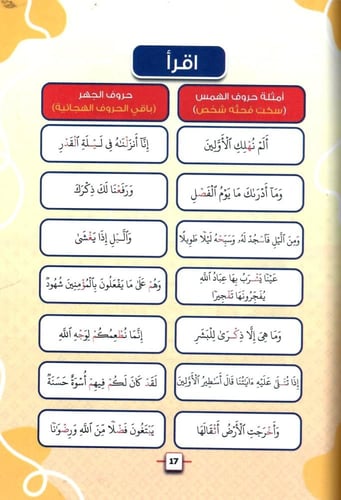 اقرأ
أمثلة حروف الهمس
(سكت فحثه شخص)
حروف الجهر
(باقي الحروف الهجائية)
أَلَمْ نُهْلِكِ ٱلْأَوَّلِينَ
إِنَّآ أَنزَلْنَٰهُ فِى لَيْلَةِ ٱلْقَدْرِ
وَمَآ أَدْرَىٰكَ مَا يَوْمُ ٱلْفَصْلِ
وَرَفَعْنَا لَكَ ذِكْرَكَ
وَمِنَ ٱلَّيْلِ فَٱسْجُدْ لَهُۥ وَسَبِّحْهُ لَيْلًا طَوِيلًا
وَٱلَّيْلِ إِذَا يَغْشَىٰ
عَيْنًا يَشْرَبُ بِهَا عِبَادُ ٱللَّهِ
يُفَجِّرُونَهَا تَفْجِيرًا
وَهُمْ عَلَىٰ مَا يَفْعَلُونَ بِٱلْمُؤْمِنِينَ شُهُودٌ
وَمَا هِىَ إِلَّا ذِكْرَىٰ لِلْبَشَرِ
إِنَّمَا نُطْعِمُكُمْ لِوَجْهِ ٱللَّهِ
إِذَا تُتْلَىٰ عَلَيْهِ ءَايَٰتُنَا قَالَ أَسَٰطِيرُ ٱلْأَوَّلِينَ
لَقَدْ كَانَ لَكُمْ فِيهِمْ أُسْوَةٌ حَسَنَةٌ
وَأَخْرَجَتِ ٱلْأَرْضُ أَثْقَالَهَا
يَبْتَغُونَ فَضْلًا مِّنَ ٱللَّهِ وَرِضْوَٰنًا
17